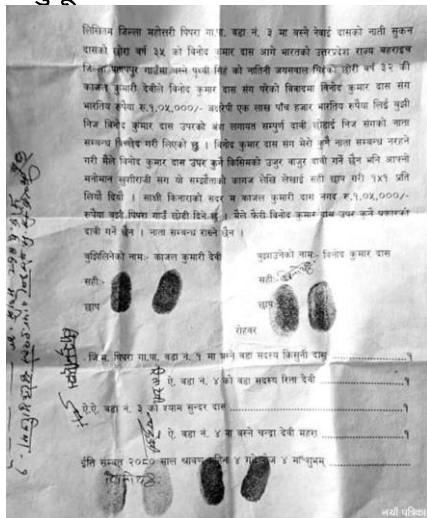 लिखितम जिल्ला महोत्तरी पिपरा गा.पा. वडा नं. ३ मा बस्ने नेवाई दासको नाती सुकन
दासको छोरा वर्ष ३५ को विनोद कुमार दास आगे भारतको उत्तरप्रदेश राज्य बहराइच
जिल्ला गाउँमा बस्ने पृथ्वी सिंह को नातिनी जयसवाल सिंहको छोरी वर्ष ३२ की
काजल कुमारी देवीले विनोद कुमार दास संग परेको विवादमा विनोद कुमार दास संग
भारतिय रुपैया रु.१,०५,०००/- अक्षरेपी एक लास पाँच हजार भारतिय रुपैया लिई बुझी
निज विनोद कुमार दास उपरको लगायत सम्पुर्ण दावी छोडाई निज संगको नाता
सम्बन्ध विच्छेद गरी लिएको छु । विनोद कुमार दास संग मेरो कुनै नाता सम्बन्ध नरहने
गरी मैले विनोद कुमार दास उपर कुनै किसिमको उजुर वाजुर दावी गर्ने छैन भनि आफ्नो
मनोमान खुशीराजी संग यो सम्झौताको कागज लेखि लेखाई सही छाप गरी १x१ प्रति
लियौं दियौं । साक्षी किनाराको सदर म काजल कुमारी दास नगद रु.१,०५,०००/-
रुपैया बुझी पिपरा गाउँ छोडी दिने छु । मैले फेरी विनोद कुमार दास उपर कुनै प्रकारको
दावी गर्ने छैन । नाता सम्बन्ध राख्ने छैन ।
बुझिलिनेको नाम:- काजल कुमारी देवी बुझाउनेको नाम:- विनोद कुमार दास
सही: सही:
छाप छाप
रोहवर
जि.म. पिपरा गा.पा. वडा नं. १ मा बस्ने वडा सदस्य किसुनी दास १
ऐ. वडा नं. ४ को वडा सदस्य रिता देवी १
ऐ.ऐ. वडा नं. ३ को श्याम सुन्दर दास १
ऐ. वडा नं. ४ मा बस्ने चन्द्रा देवी महरा १
ईति सम्वत २०८० साल श्रावण महिना ४ गते रोज ४ मा शुभम्
नयाँ पत्रिका